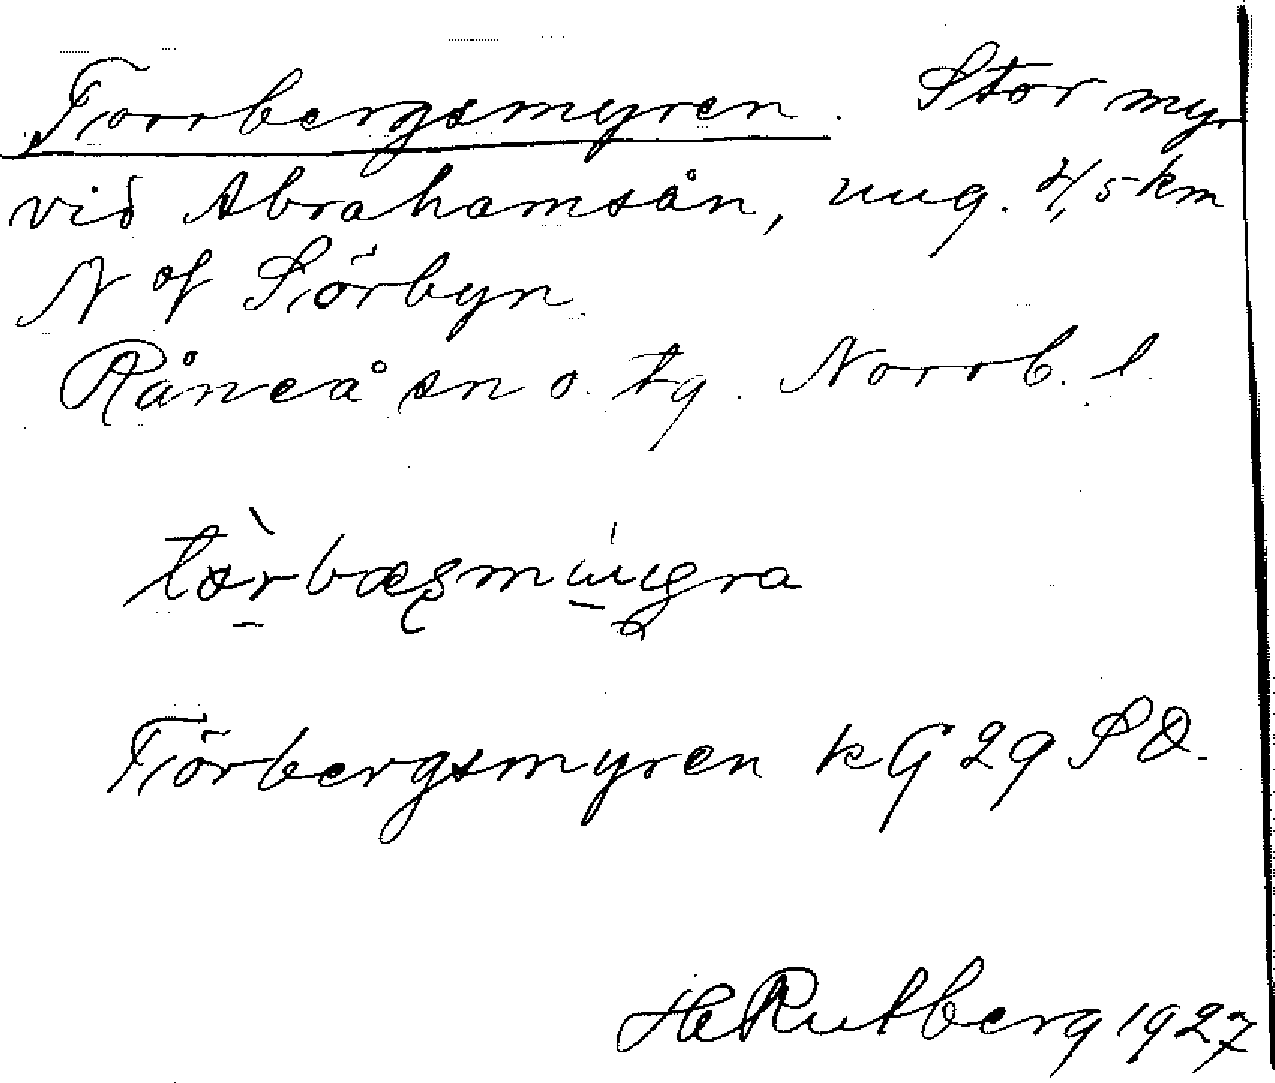 Torrbergsmyren. Stor myr
vid Abrahamsån, ung. 4,5 km
N of Sörbyn.
Råneå sn o. tg. Norrb. l.
Törbergsmyren kG 29 SO.
HRutberg 1927